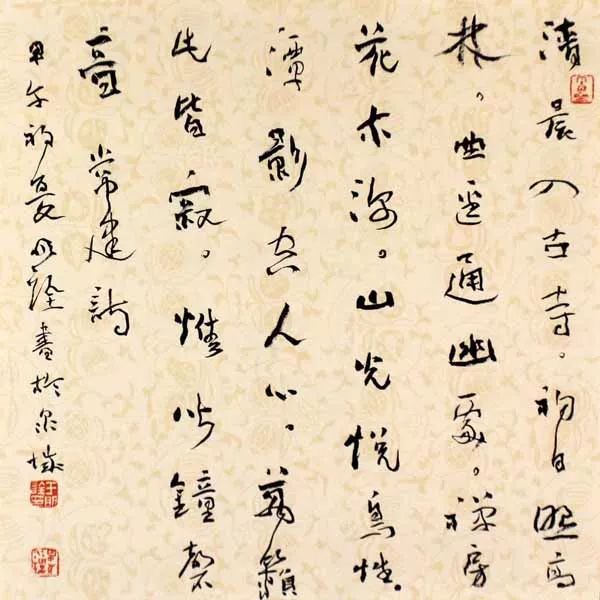 清晨入古寺。初日照高
林。曲迳通幽處。禪房
花木深。山光悦鳥性。
潭影空人心。萬籟
此皆寂。惟闻鐘磬
音 常建詩
甲午初夏明詮書於泉城